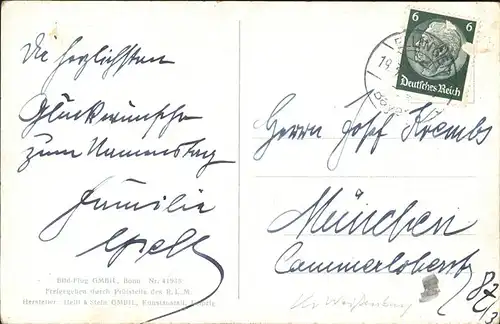 Die herzlichsten
Glückwünsche
zum Namenstag
Familie
Bild-Flug GMBH., Bonn Nr. 41963
Freigegeben durch Prüfstelle des R.L.M.
Hersteller: Heim & Stein GMBH., Kunstanstalt, Leipzig
6 6
Deutsches Reich
19.
Herrn Josef Krembs
München
Cammerloherstr
82/3
Kr. Weißenburg